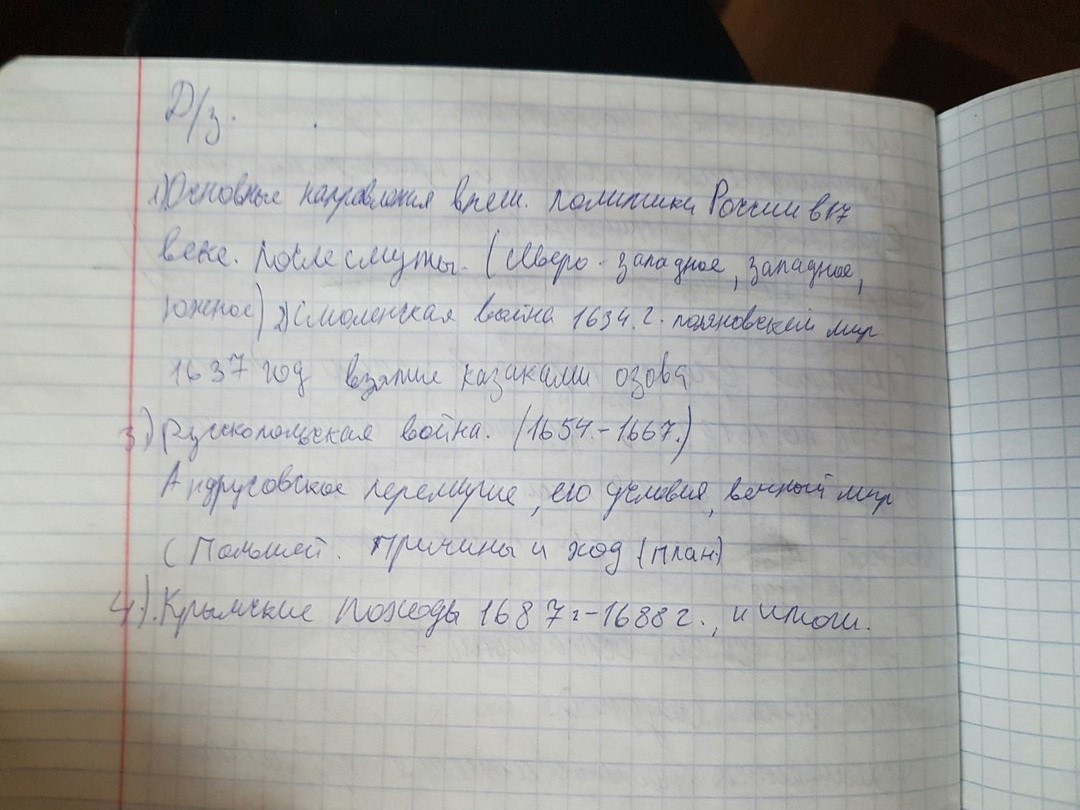 Д/з.
1) Основные направления внеш. политики России в 17
веке. после смуты. (Северо-западное, западное,
Южное) 2) Смоленская война 1634.г. поляновский мир
1637 год взятие казаками озова
3) Рускопольская война. (1654.-1667.)
Андрусовское перемирие, его условия, вечный мир
С Польшей. Причины и ход (план)
4). Крымские походы 1687г-1688г., и итоги.